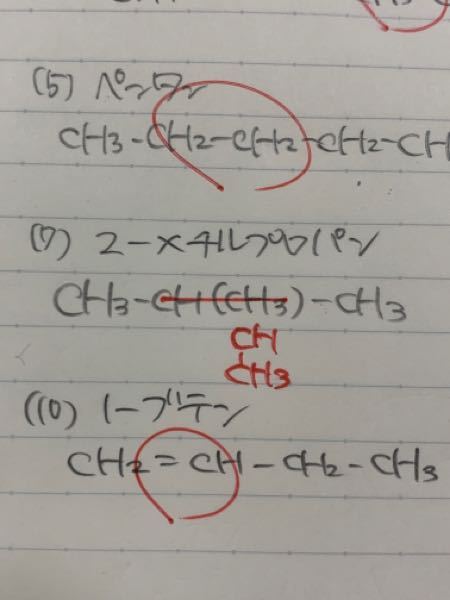 (5) ペンタン
CH3-CH2-CH2-CH2-CH
(9) 2-メチルプロパン
CH3-CH(CH3)-CH3
CH
CH3
(10) 1-ブテン
CH2=CH-CH2-CH3